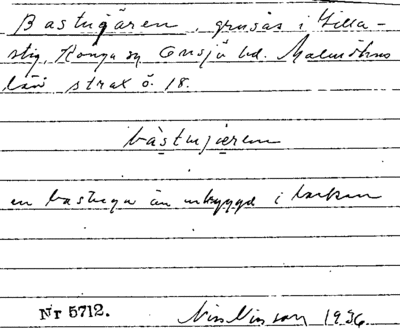 Bastugåren, grusås i Gilla-
stig, Konga sn Onsjö hd. Malmöhus
län strax ö. 18.
bàstugjæren
en bastuga än inbyggd i backen
Nr 5712.
Nils Nilsson 1936.